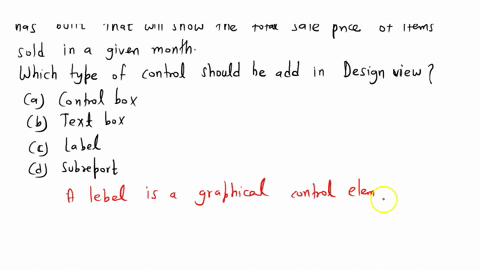 has built that will show the total sale price of items
sold in a given month.
Which type of control should be add in Design view?
(a) Control box
(b) Text box
(c) Label
(d) Subreport
A lebel is a graphical control elem